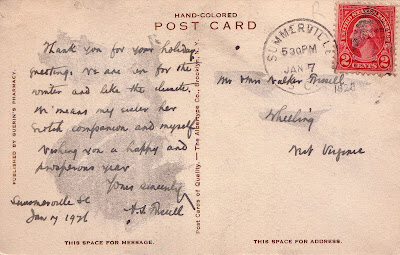 HAND-COLORED
POST CARD
PUBLISHED BY GUERIN'S PHARMACY.
Thank you for your holiday
greetings We are in for the
winter and like the climate.
We means my sister her
Scotch companion and myself
Wishing you a happy and
prosperous year
Yours sincerely
Summerville SC
Jan 7 1926
THIS SPACE FOR MESSAGE.
Post Cards of Quality.—The Albertype Co., Brooklyn, N.Y.
SUMMERVILLE
530PM
JAN 7
S.C.
UNITED STATES POSTAGE
2 CENTS 2
Mr Walker
Wheeling
West Virginia
THIS SPACE FOR ADDRESS.